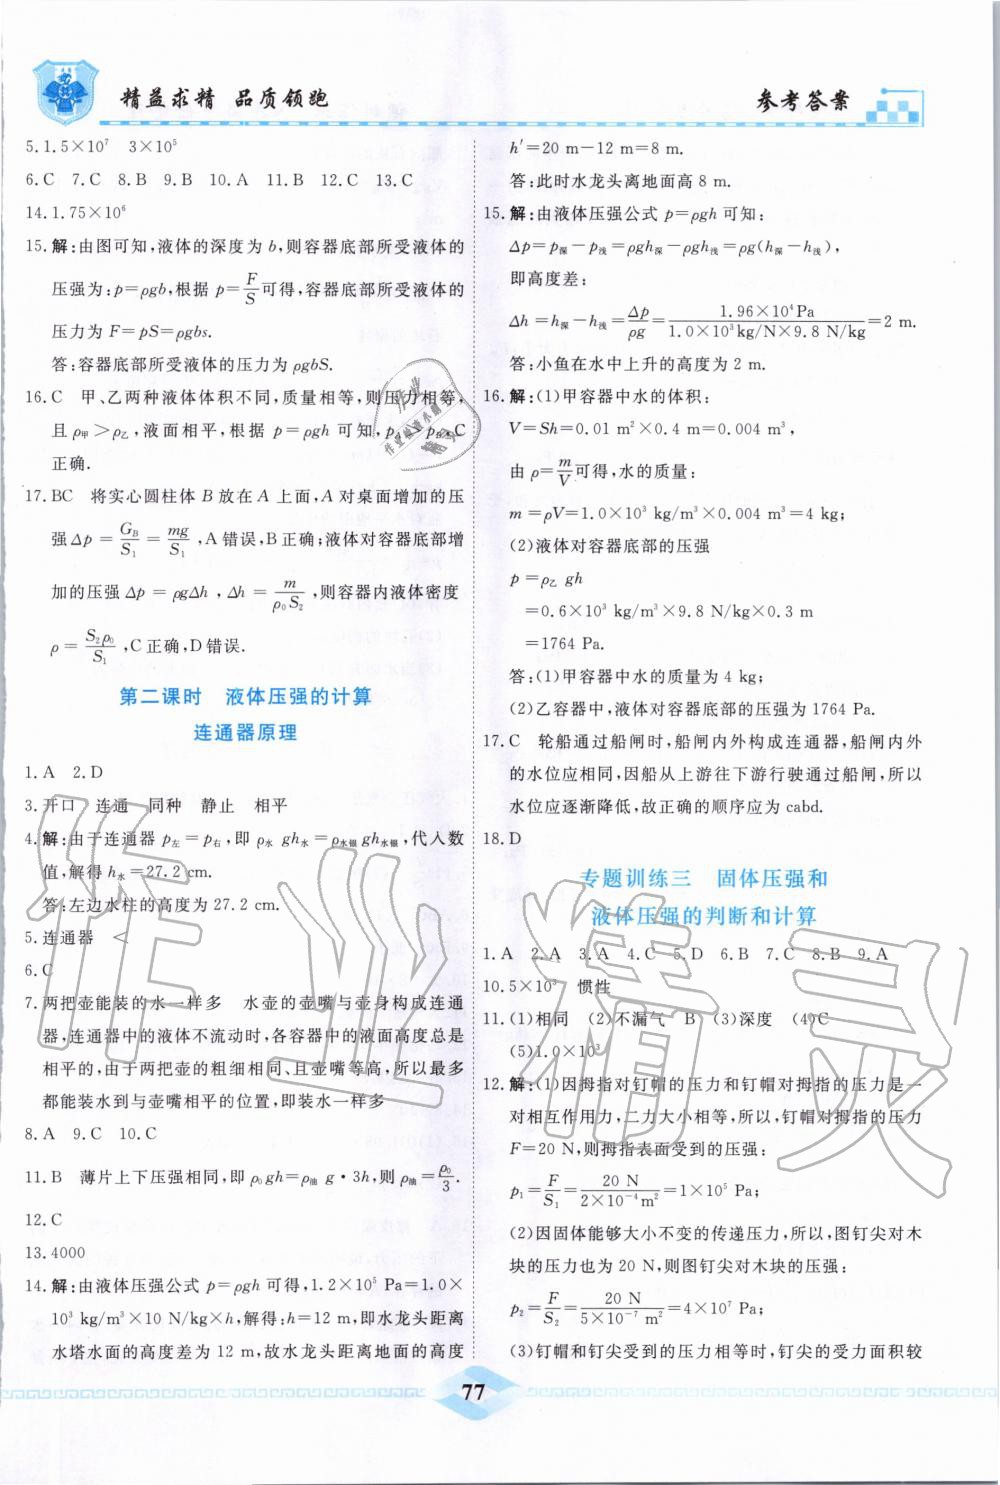 精益求精 品质领跑
参考答案
5.1.5×10⁷ 3×10⁵
6.C 7.C 8.B 9.B 10.A 11.B 12.C 13.C
14.1.75×10⁶
15.解:由图可知,液体的深度为b,则容器底部所受液体的
压强为:p=ρgb,根据 p=F/S 可得,容器底部所受液体的
压力为 F=pS=ρgbs.
答:容器底部所受液体的压力为 ρgbS.
16.C 甲、乙两种液体体积不同,质量相等,则压力相等,
且 ρ甲>ρ乙,液面相平,根据 p=ρgh 可知,pA>pB,C
正确.
17.BC 将实心圆柱体 B 放在 A 上面,A 对桌面增加的压
强Δp=GB/S₁=mg/S₁,A错误,B正确;液体对容器底部增
加的压强 Δp=ρgΔh,Δh=m/ρ₀S₂,则容器内液体密度
ρ=S₂ρ₀/S₁,C正确,D错误.
第二课时 液体压强的计算
连通器原理
1.A 2.D
3.开口 连通 同种 静止 相平
4.解:由于连通器 p左=p右,即 ρ水 gh水=ρ水银 gh水银,代人数
值,解得 h水=27.2 cm.
答:左边水柱的高度为 27.2 cm.
5.连通器 <
6.C
7.两把壶能装的水一样多 水壶的壶嘴与壶身构成连通
器,连通器中的液体不流动时,各容器中的液面高度总是
相平的,由于两把壶的粗细相同、且壶嘴等高,所以最多
都能装水到与壶嘴相平的位置,即装水一样多
8.A 9.C 10.C
11.B 薄片上下压强相同,即 ρ₀gh=ρ油 g·3h,则 ρ油=ρ₀/3.
12.C
13.4000
14.解:由液体压强公式 p=ρgh 可得,1.2×10⁵ Pa=1.0×
10³ kg/m³×10 N/kg×h,解得:h=12 m,即水龙头距离
水塔水面的高度差为 12 m,故水龙头距离地面的高度
h′=20 m−12 m=8 m.
答:此时水龙头离地面高 8 m.
15.解:由液体压强公式 p=ρgh 可知:
Δp=p深−p浅=ρgh深−ρgh浅=ρg(h深−h浅),
即高度差:
Δh=h深−h浅=Δp/ρg=1.96×10⁴Pa/1.0×10³kg/N×9.8 N/kg=2 m.
答:小鱼在水中上升的高度为 2 m.
16.解:(1)甲容器中水的体积:
V=Sh=0.01 m²×0.4 m=0.004 m³,
由 ρ=m/V 可得,水的质量:
m=ρV=1.0×10³ kg/m³×0.004 m³=4 kg;
(2)液体对容器底部的压强
p=ρ乙 gh
=0.6×10³ kg/m³×9.8 N/kg×0.3 m
=1764 Pa.
答:(1)甲容器中水的质量为 4 kg;
(2)乙容器中,液体对容器底部的压强为 1764 Pa.
17.C 轮船通过船闸时,船闸内外构成连通器,船闸内外
的水位应相同,因船从上游往下游行驶通过船闸,所以
水位应逐渐降低,故正确的顺序应为 cabd.
18.D
专题训练三 固体压强和
液体压强的判断和计算
1.A 2.A 3.A 4.C 5.D 6.B 7.C 8.B 9.A
10.5×10³ 惯性
11.(1)相同 (2)不漏气 B (3)深度 (4)C
(5)1.0×10³
12.解:(1)因拇指对钉帽的压力和钉帽对拇指的压力是一
对相互作用力,二力大小相等,所以,钉帽对拇指的压力
F=20 N,则拇指表面受到的压强:
p₁=F/S₁=20 N/2×10⁻⁴m²=1×10⁵ Pa;
(2)因固体能够大小不变的传递压力,所以,图钉尖对木
块的压力也为 20 N,则图钉尖对木块的压强:
p₂=F/S₂=20 N/5×10⁻⁷ m²=4×10⁷ Pa;
(3)钉帽和钉尖受到的压力相等时,钉尖的受力面积较
77
作业精灵